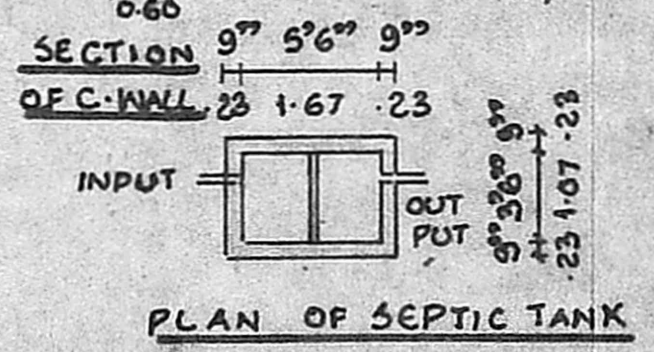 0.60
SECTION 9" 5'6" 9"
OF C.WALL .23 1.67 .23
INPUT
OUT
PUT
9" 3'6" 9"
.23 1.07 .23
PLAN OF SEPTIC TANK